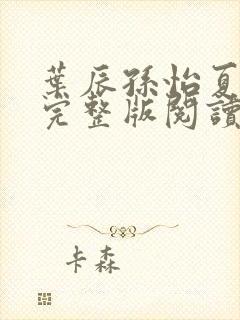 葉辰孫怡夏
完整版閱讀
卡森